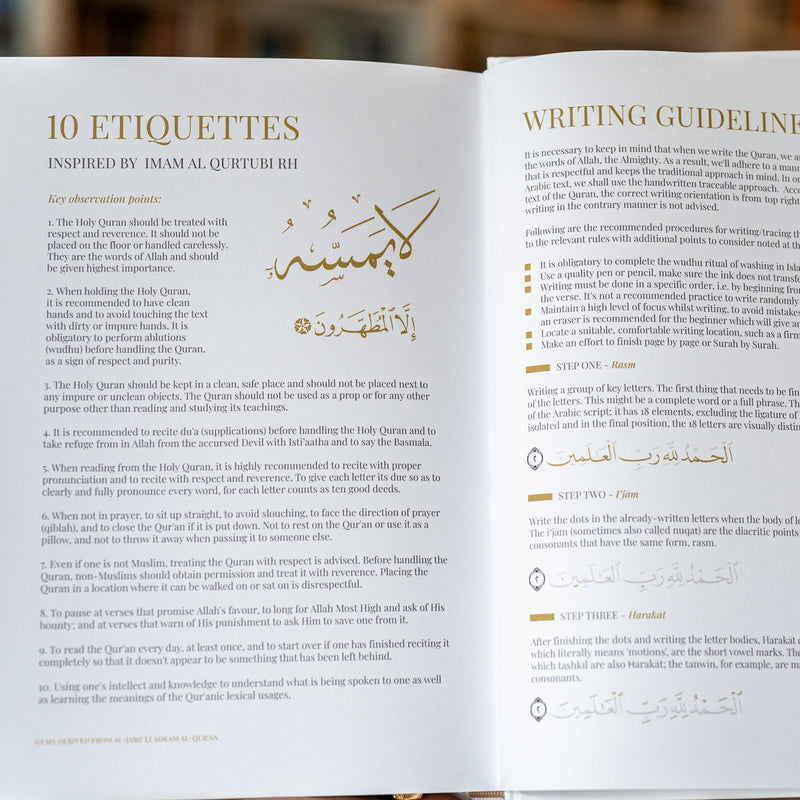 10 ETIQUETTES
INSPIRED BY IMAM AL QURTUBI RH
Key observation points:
1. The Holy Quran should be treated with
respect and reverence. It should not be
placed on the floor or handled carelessly.
They are the words of Allah and should
be given highest importance.
2. When holding the Holy Quran,
it is recommended to have clean
hands and to avoid touching the text
with dirty or impure hands. It is
obligatory to perform ablutions
(wudhu) before handling the Quran,
as a sign of respect and purity.
لَا يَمَسُّهُ
إِلَّا ٱلْمُطَهَّرُونَ
3. The Holy Quran should be kept in a clean, safe place and should not be placed next to
any impure or unclean objects. The Quran should not be used as a prop or for any other
purpose other than reading and studying its teachings.
4. It is recommended to recite du'a (supplications) before handling the Holy Quran and to
take refuge from in Allah from the accursed Devil with Isti'aatha and to say the Basmala.
5. When reading from the Holy Quran, it is highly recommended to recite with proper
pronunciation and to recite with respect and reverence. To give each letter its due so as to
clearly and fully pronounce every word, for each letter counts as ten good deeds.
6. When not in prayer, to sit up straight, to avoid slouching, to face the direction of prayer
(qiblah), and to close the Qur'an if it is put down. Not to rest on the Qur'an or use it as a
pillow, and not to throw it away when passing it to someone else.
7. Even if one is not Muslim, treating the Quran with respect is advised. Before handling the
Quran, non-Muslims should obtain permission and treat it with reverence. Placing the
Quran in a location where it can be walked on or sat on is disrespectful.
8. To pause at verses that promise Allah's favour, to long for Allah Most High and ask of His
bounty; and at verses that warn of His punishment to ask Him to save one from it.
9. To read the Qur'an every day, at least once, and to start over if one has finished reciting it
completely so that it doesn't appear to be something that has been left behind.
10. Using one's intellect and knowledge to understand what is being spoken to one as well
as learning the meanings of the Qur'anic lexical usages.
GEMS DERIVED FROM AL-JAMI' LI AHKAM AL-QUR'AN
WRITING GUIDELINE
It is necessary to keep in mind that when we write the Quran, we a
the words of Allah, the Almighty. As a result, we'll adhere to a mann
that is respectful and keeps the traditional approach in mind. In or
Arabic text, we shall use the handwritten traceable approach. Acco
text of the Quran, the correct writing orientation is from top right
writing in the contrary manner is not advised.
Following are the recommended procedures for writing/tracing th
to the relevant rules with additional points to consider noted at the
It is obligatory to complete the wudhu ritual of washing in Isla
Use a quality pen or pencil, make sure the ink does not transfe
Writing must be done in a specific order, i.e. by beginning fro
the verse. It's not a recommended practice to write randomly
Maintain a high level of focus whilst writing, to avoid mistakes
an eraser is recommended for the beginner which will give an
Locate a suitable, comfortable writing location, such as a firm
Make an effort to finish page by page or Surah by Surah.
STEP ONE - Rasm
Writing a group of key letters. The first thing that needs to be fin
of the letters. This might be a complete word or a full phrase. Th
of the Arabic script; it has 18 elements, excluding the ligature of
isolated and in the final position, the 18 letters are visually distin
ٱلْحَمْدُ لِلَّهِ رَبِّ ٱلْعَـٰلَمِينَ ٢
STEP TWO - I'jām
Write the dots in the already-written letters when the body of le
The i'jam (sometimes also called nuqat) are the diacritic points
consonants that have the same form, rasm.
ٱلْحَمْدُ لِلَّهِ رَبِّ ٱلْعَـٰلَمِينَ ٢
STEP THREE - Harakāt
After finishing the dots and writing the letter bodies, Harakat
which literally means 'motions', are the short vowel marks. The
which tashkil are also Harakat; the tanwin, for example, are ma
consonants.
ٱلْحَمْدُ لِلَّهِ رَبِّ ٱلْعَـٰلَمِينَ ٢